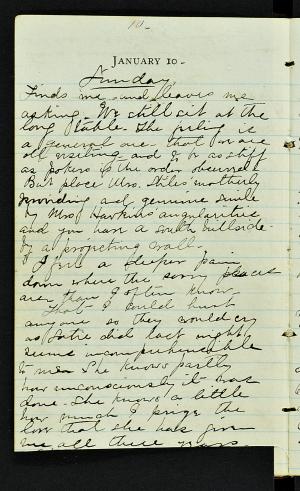 10.
JANUARY 10-
Sunday
Finds me and leaves me
asking. We still sit at the
long table. The feeling is
a general one that we are
all visiting and to be as stiff
as pokers is the order observed.
But place Mrs. Stiles' motherly
providing and genuine smile
by Mrs. Hawkins' angularities
and you have a south hillside
by a projecting wall.
I feel a deeper pain
down where the sorry places
are than I often know.
That I could hurt
anyone so they would cry
as did last night
seems incomprehensible
to me. She knows partly
how unconsciously it was
done. She knows a little
how much I prize the
love that she has given
me all these years.